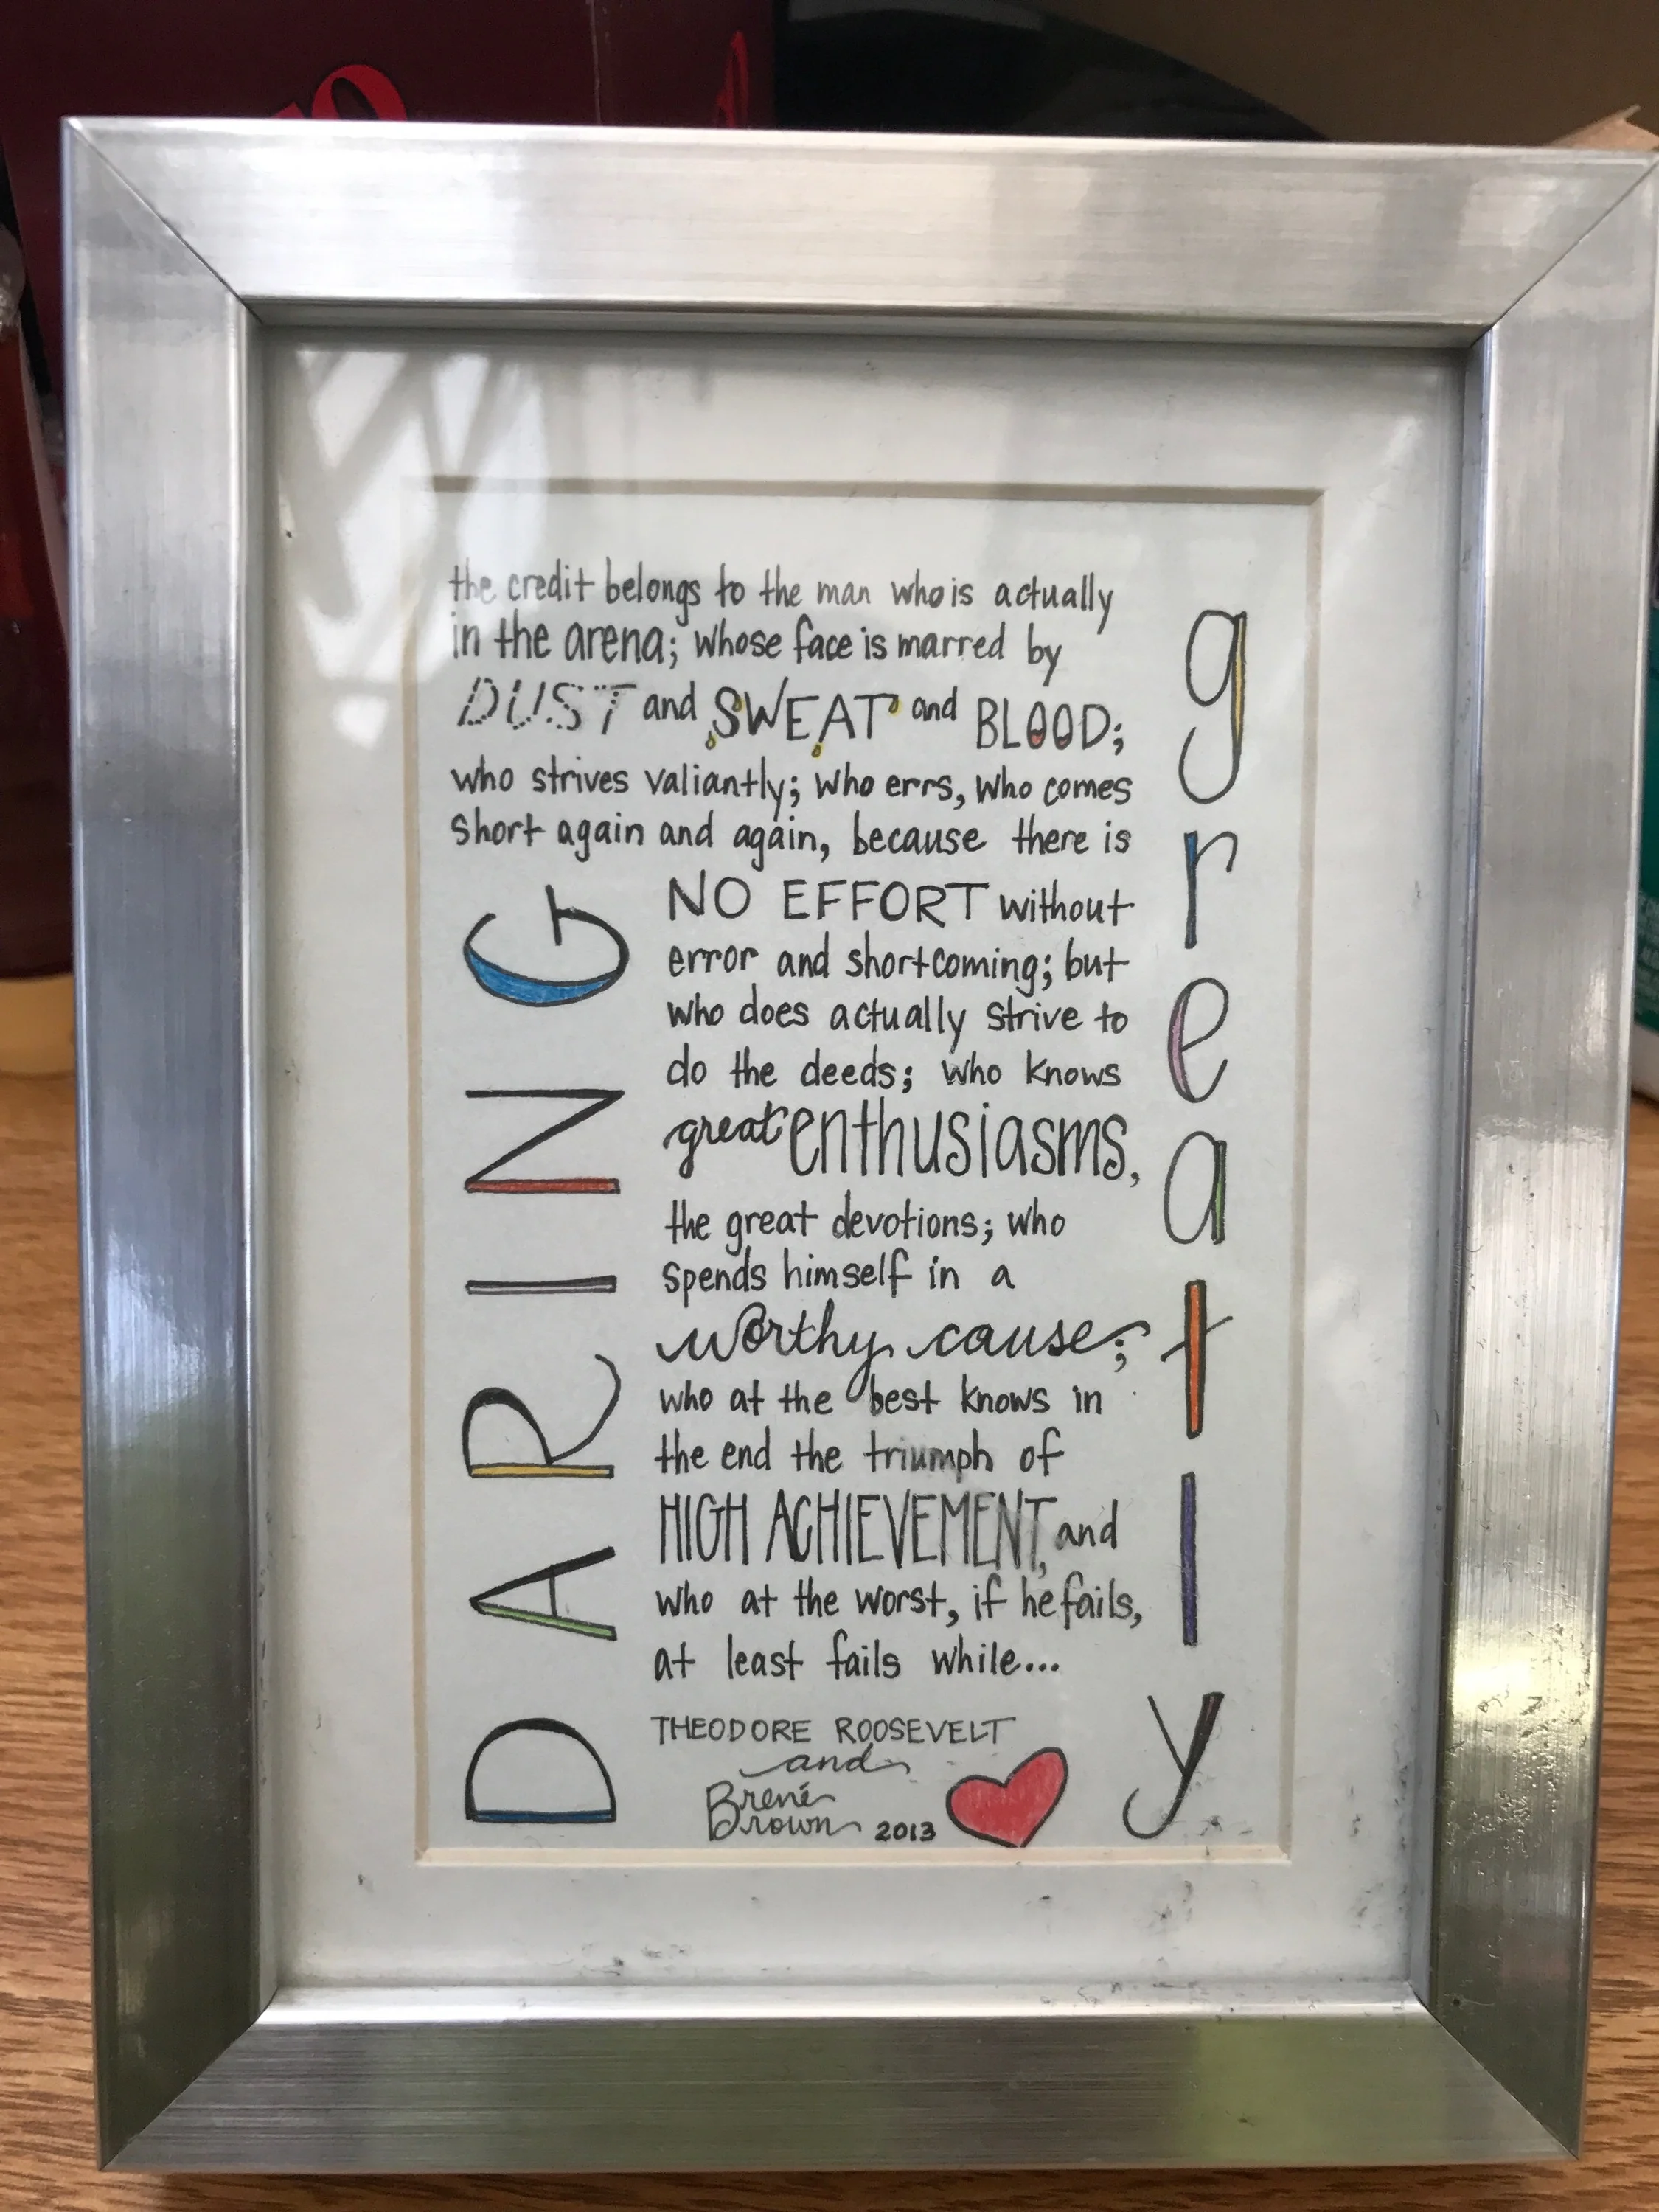 the credit belongs to the man who is actually
in the arena; whose face is marred by
DUST and SWEAT and BLOOD;
who strives valiantly; who errs, who comes
short again and again, because there is
NO EFFORT without
error and shortcoming; but
who does actually strive to
do the deeds; who knows
great enthusiasms,
the great devotions; who
spends himself in a
worthy cause;
who at the best knows in
the end the triumph of
HIGH ACHIEVEMENT, and
who at the worst, if he fails,
at least fails while...
DARING
greatly
THEODORE ROOSEVELT
and
Brené
Brown 2013